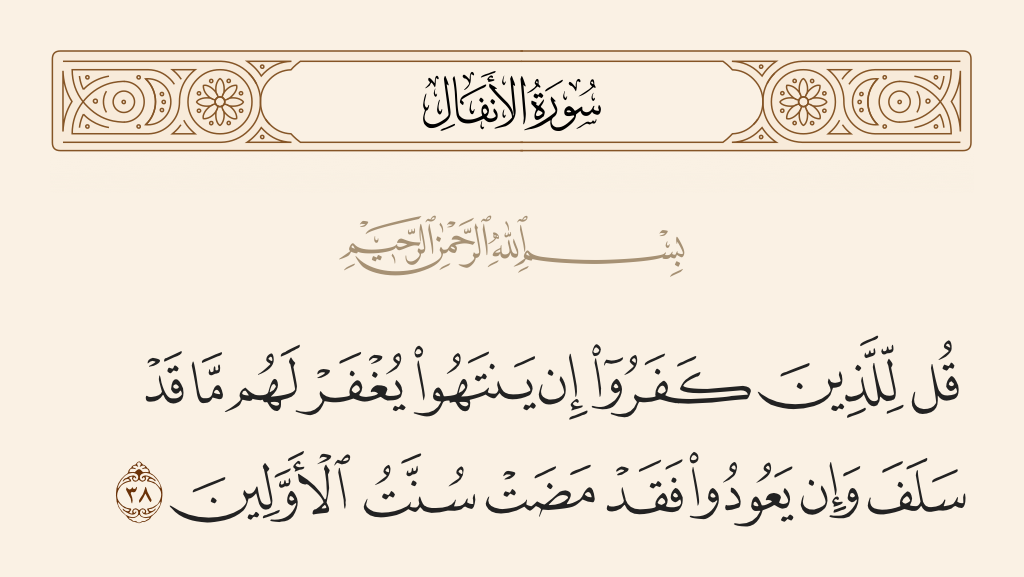 سُورَةُ الأَنفَالِ
بِسْمِ ٱللَّهِ ٱلرَّحْمَٰنِ ٱلرَّحِيمِ
قُل لِّلَّذِينَ كَفَرُوٓا۟ إِن يَنتَهُوا۟ يُغْفَرْ لَهُم مَّا قَدْ
سَلَفَ وَإِن يَعُودُوا۟ فَقَدْ مَضَتْ سُنَّتُ ٱلْأَوَّلِينَ ٣٨